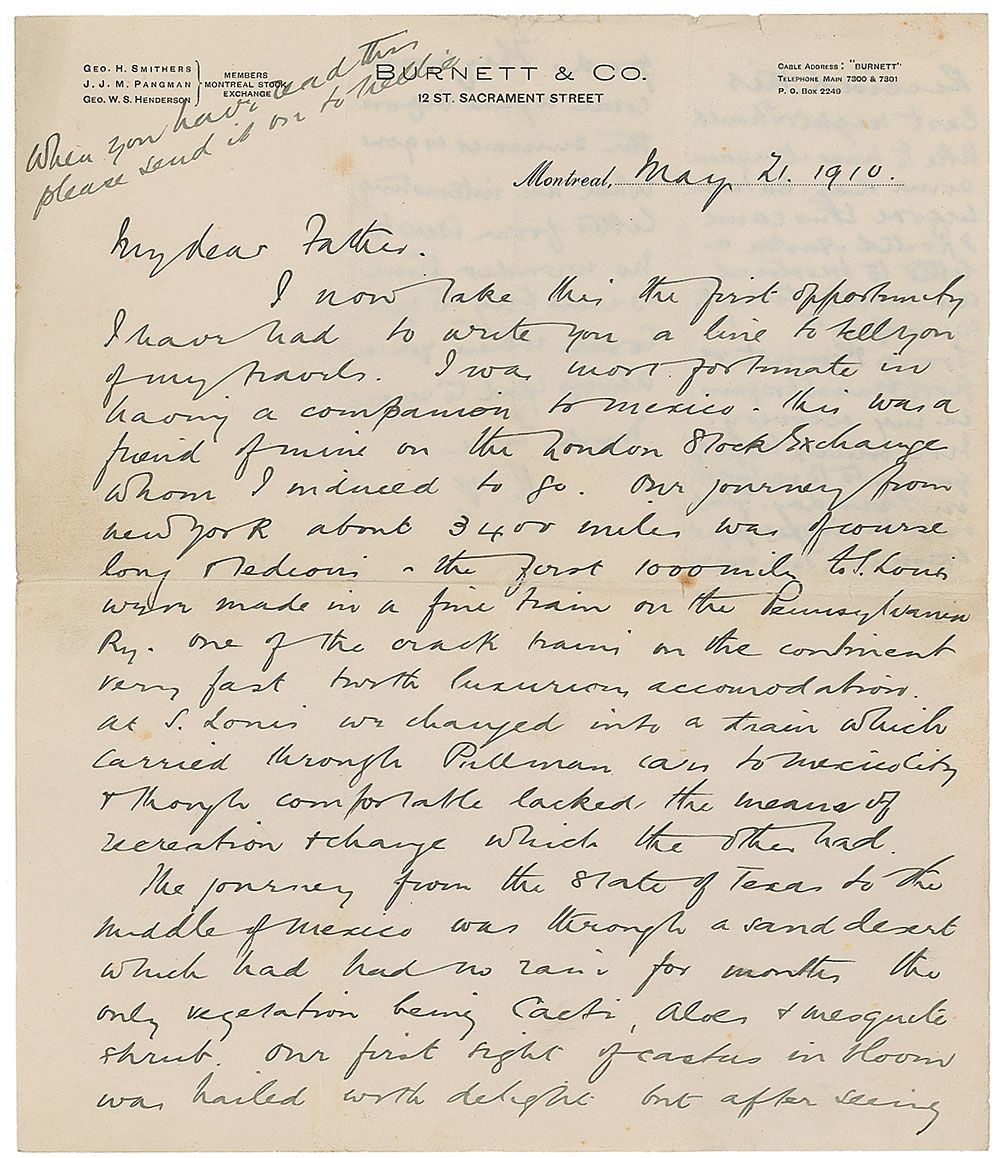 GEO. H. SMITHERS
J. J. M. PANGMAN
GEO. W. S. HENDERSON
MEMBERS
MONTREAL STOCK
EXCHANGE
BURNETT & CO.
12 ST. SACRAMENT STREET
CABLE ADDRESS: "BURNETT"
TELEPHONE MAIN 7300 & 7301
P. O. BOX 2249
When you have read this
please send it on to Nellie
Montreal, May 21. 1910.
My dear Father.
I now take this the first opportunity
I have had to write you a line to tell you
of my travels. I was most fortunate in
having a companion to Mexico. this was a
friend of mine on the London Stock Exchange
whom I induced to go. Our journey from
New York about 3400 miles was of course
long & tedious - the first 1000 miles to S. Louis
were made in a fine train on the Pennsylvania
Ry. one of the crack trains on the continent
very fast & with luxurious accomodation.
at S. Louis we changed into a train which
carried through Pullman cars to Mexico City
& though comfortable lacked the means of
recreation & change which the other had.
The journey from the State of Texas to the
middle of Mexico was through a sand desert
which had had no rain for months the
only vegetation being Cacti, Aloes & mesquite
shrub. Our first sight of cactus in bloom
was hailed with delight but after seeing